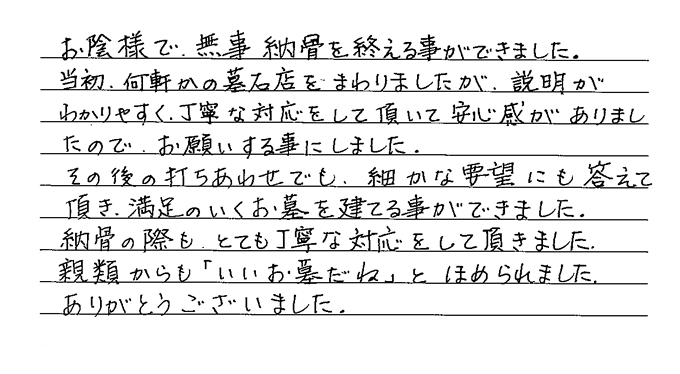 お陰様で、無事納骨を終える事ができました。
当初、何軒かの墓石店をまわりましたが、説明が
わかりやすく、丁寧な対応をして頂いて安心感がありまし
たので、お願いする事にしました。
その後の打ちあわせでも、細かな要望にも答えて
頂き、満足のいくお墓を建てる事ができました。
納骨の際も、とても丁寧な対応をして頂きました。
親類からも「いいお墓だね」とほめられました。
ありがとうございました。